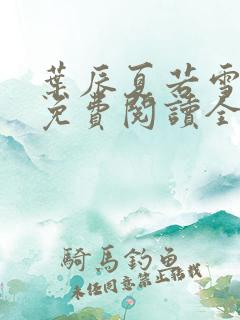 葉辰夏若雪
免費閱讀全
騎馬釣魚
未經同意禁止轉載